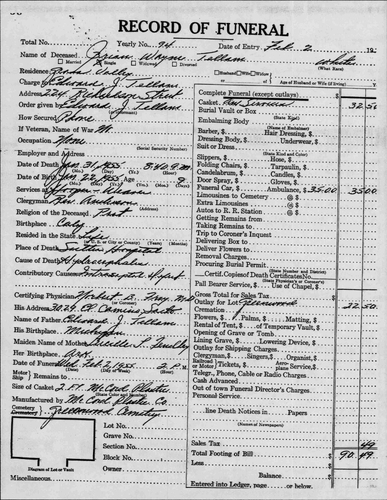 RECORD OF FUNERAL
Total No. Yearly No. 94 Date of Entry Feb. 2, 19
Name of Deceased Brian Wayne Tellam White
Married Single Widowed Divorced (What Race)
Residence Valley Husband Wife Widow of
Age of Husband or Wife (if living) Years
Charge to Edward J. Tellam
Address 224 Street
Order given by Edward J. Tellam
How Secured Phone
If Veteran, Name of War No.
Occupation None
(Social Security Number)
Employer and Address
Date of Death Jan. 31, 1955 5:40 P.M.
Date of Birth Jan. 22, 1955 Age 9
Services at
Clergyman Rev.
Religion of the Deceased Prot
Birthplace Calif
Resided in the State Life
Place of Death Hospital
Cause of Death Hydrocephalus
Contributory Causes
Certifying Physician Norbert D. Frey M.D.
His Address 3029 Cp. Camino Sacto
Name of Father Edward J. Tellam
His Birthplace Michigan
Maiden Name of Mother Lucille F.
Her Birthplace Ark.
Wed. Feb. 2, 1955 2 P.M.
Motor Ship Remains to
Size of Casket 2 Ft. McCord Plastic
Manufactured by McCord Plastic Co.
Cemetery Crematory Greenwood Cemetery
Lot No.
Grave No.
Section No.
Block No.
Owner
Diagram of Lot or Vault
Miscellaneous
Complete Funeral (except outlays) $
Casket 32.50
Burial Vault or Box
Embalming Body
(Name of Embalmer)
Barber, $ Hair Dressing, $
Dressing Body, $ Underwear, $
Suit or Dress
Slippers, $ Hose, $
Folding Chairs, $ Tarpaulin, $
Candelabrum, $ Candles, $
Door Spray, $ Gloves, $
Funeral Car, $ Ambulance, $ 35.00 35.00
Limousines to Cemetery @ $
Extra Limousines @ $
Autos to R. R. Station @ $
Getting Remains from
Taking Remains to
Trip to Coroner's Inquest
Delivering Box to
Deliver Flowers to
Removal Charges
Procuring Burial Permit
(State Number and District)
Certif. Copies of Death Certificate No.
(State Number)
Pall Bearer Service, $ Use of Chapel, $
Gross Total for Sales Tax $
Outlay for Lot Greenwood 22.50
Cremation
Flowers, $ Palms, $ Matting, $
Rental of Tent, $ of Temporary Vault, $
Opening of Grave or Tomb
Lining Grave, $ Lowering Device, $
Outlay for Shipping Charges
Clergyman, $ Singers, $ Organist, $
Railroad Motor or Tickets, $ Aero plane Service, $
Telegr., Phone, Cable or Radio Charges
Cash Advanced
Out of town Funeral Director's Charges
Personal Service
line Death Notices in Papers
(Names of Newspapers)
Sales Tax .49
Total Footing of Bill $ 90.49
Less $
Balance $
Entered into Ledger, page or below.